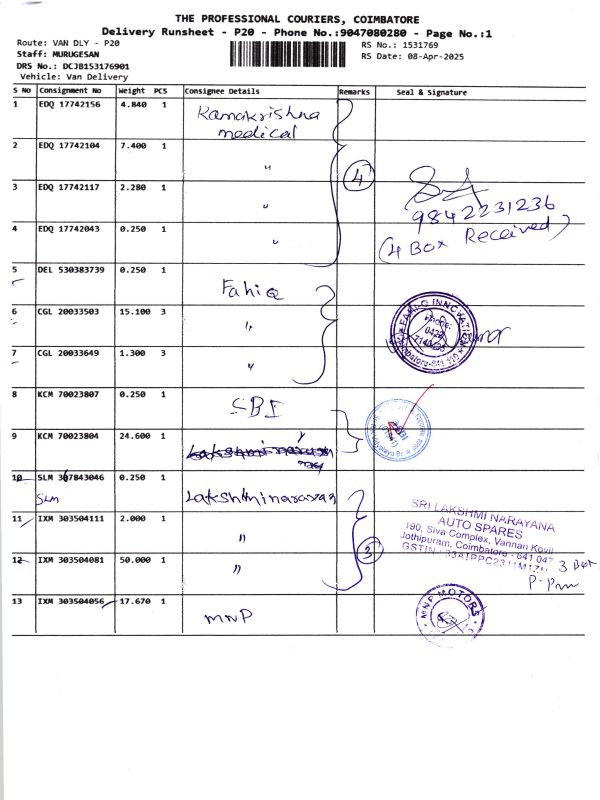 THE PROFESSIONAL COURIERS, COIMBATORE
Delivery Runsheet - P20 - Phone No.:9047080280 - Page No.:1
Route: VAN DLY - P20
Staff: MURUGESAN
DRS No.: DCJB153176901
Vehicle: Van Delivery
RS No.: 1531769
RS Date: 08-Apr-2025
S No Consignment No Weight PCS Consignee Details Remarks Seal & Signature
1 EDQ 17742156 4.840 1 Ramakrishna
medical
2 EDQ 17742104 7.400 1 "
3 EDQ 17742117 2.280 1 "
4 EDQ 17742043 0.250 1 "
4
9842231236
(4 Box Received)
5 DEL 530383739 0.250 1 Fahiq
6 CGL 20033503 15.100 3 "
7 CGL 20033649 1.300 3 "
INNOVATION
Phone:
0422
8 KCM 70023807 0.250 1 SBI
9 KCM 70023804 24.600 1
10 SLM 307843046 0.250 1 Lakshminarayan
SLM
11 IXM 303504111 2.000 1 "
12 IXM 303504081 50.000 1 "
3
SRI LAKSHMI NARAYANA
AUTO SPARES
190, Siva Complex, Vannan Kovil
Jothipuram, Coimbatore - 641 047
GSTIN : 33AIPPC2311M1ZU
3 Box
13 IXM 303504056 17.670 1 MNP
MNP MOTORS